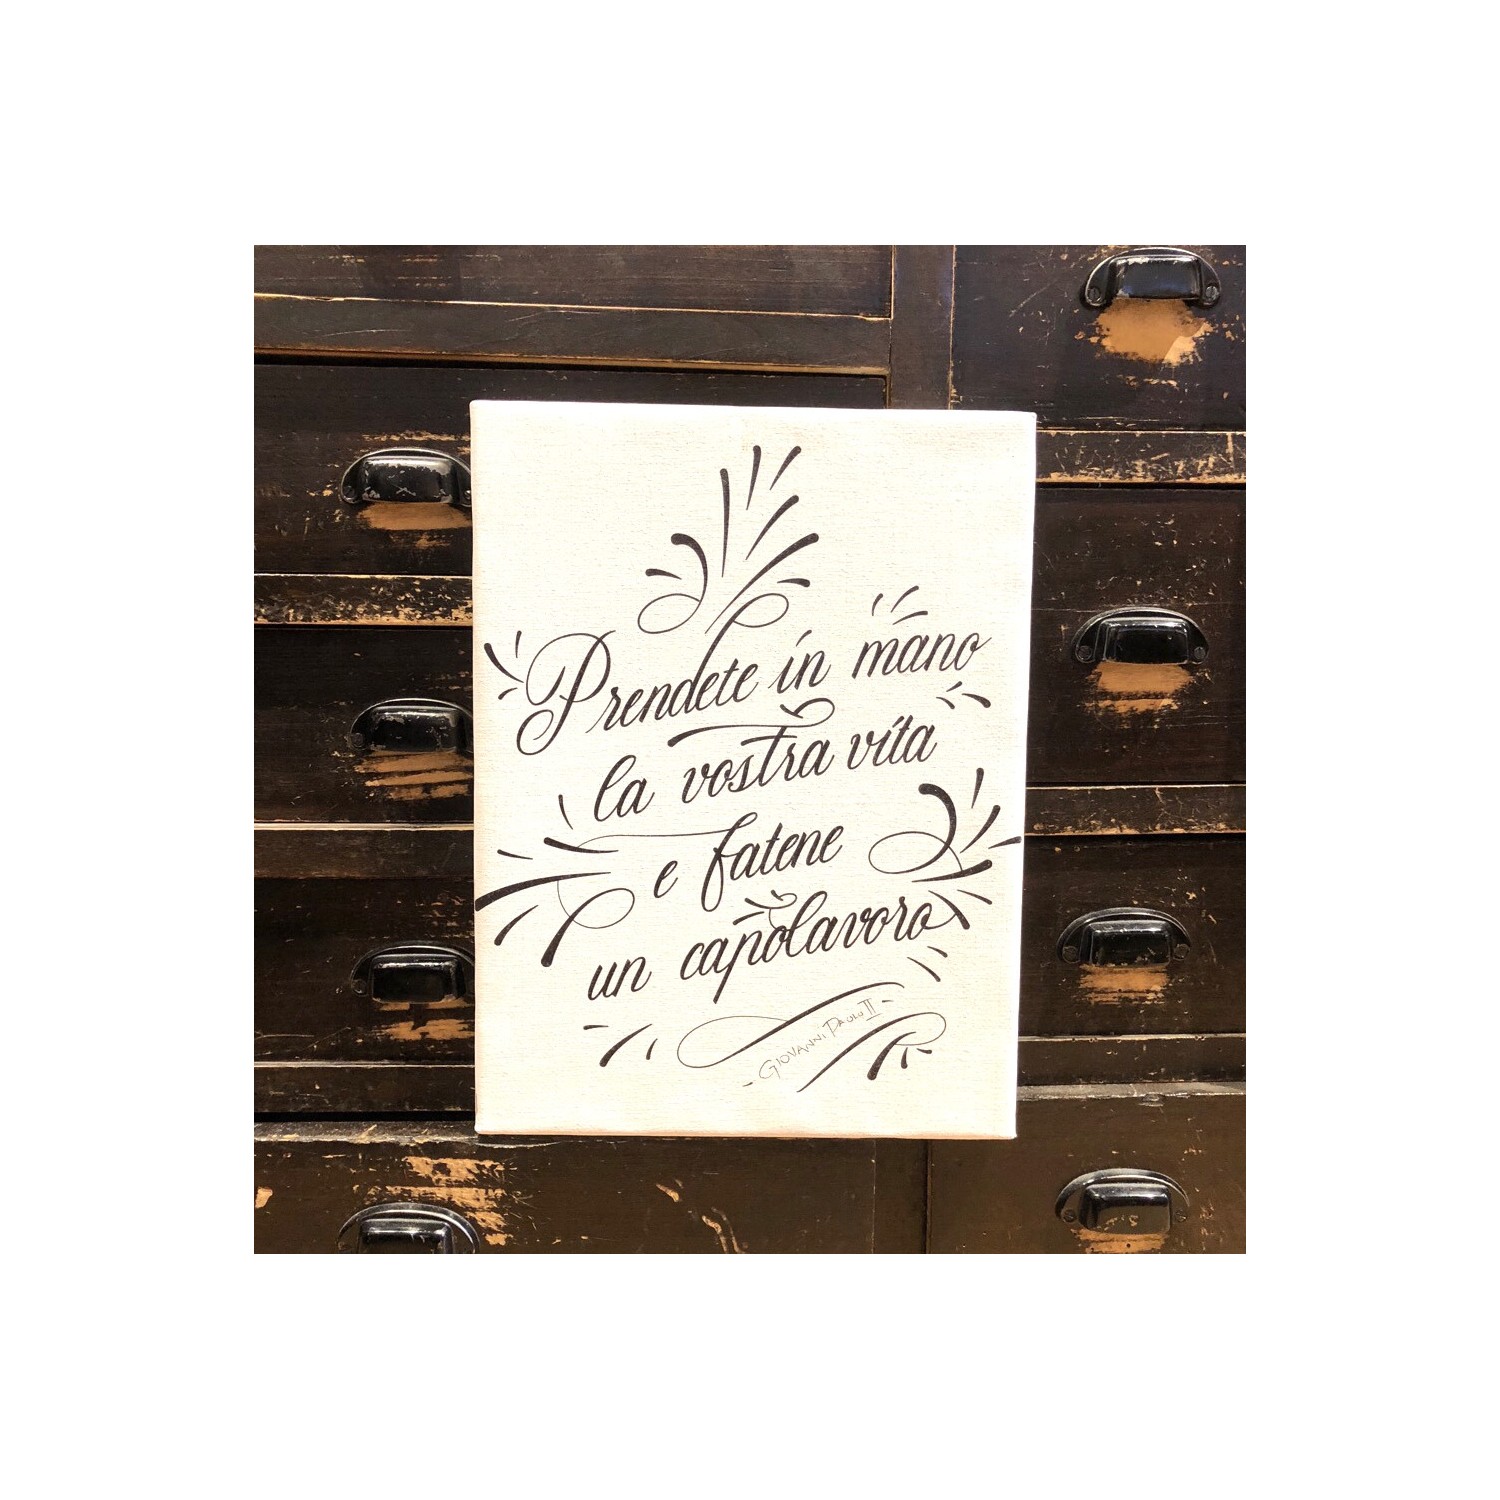 Prendete in mano
la vostra vita
e fatene
un capolavoro
- GIOVANNI PAOLO II -